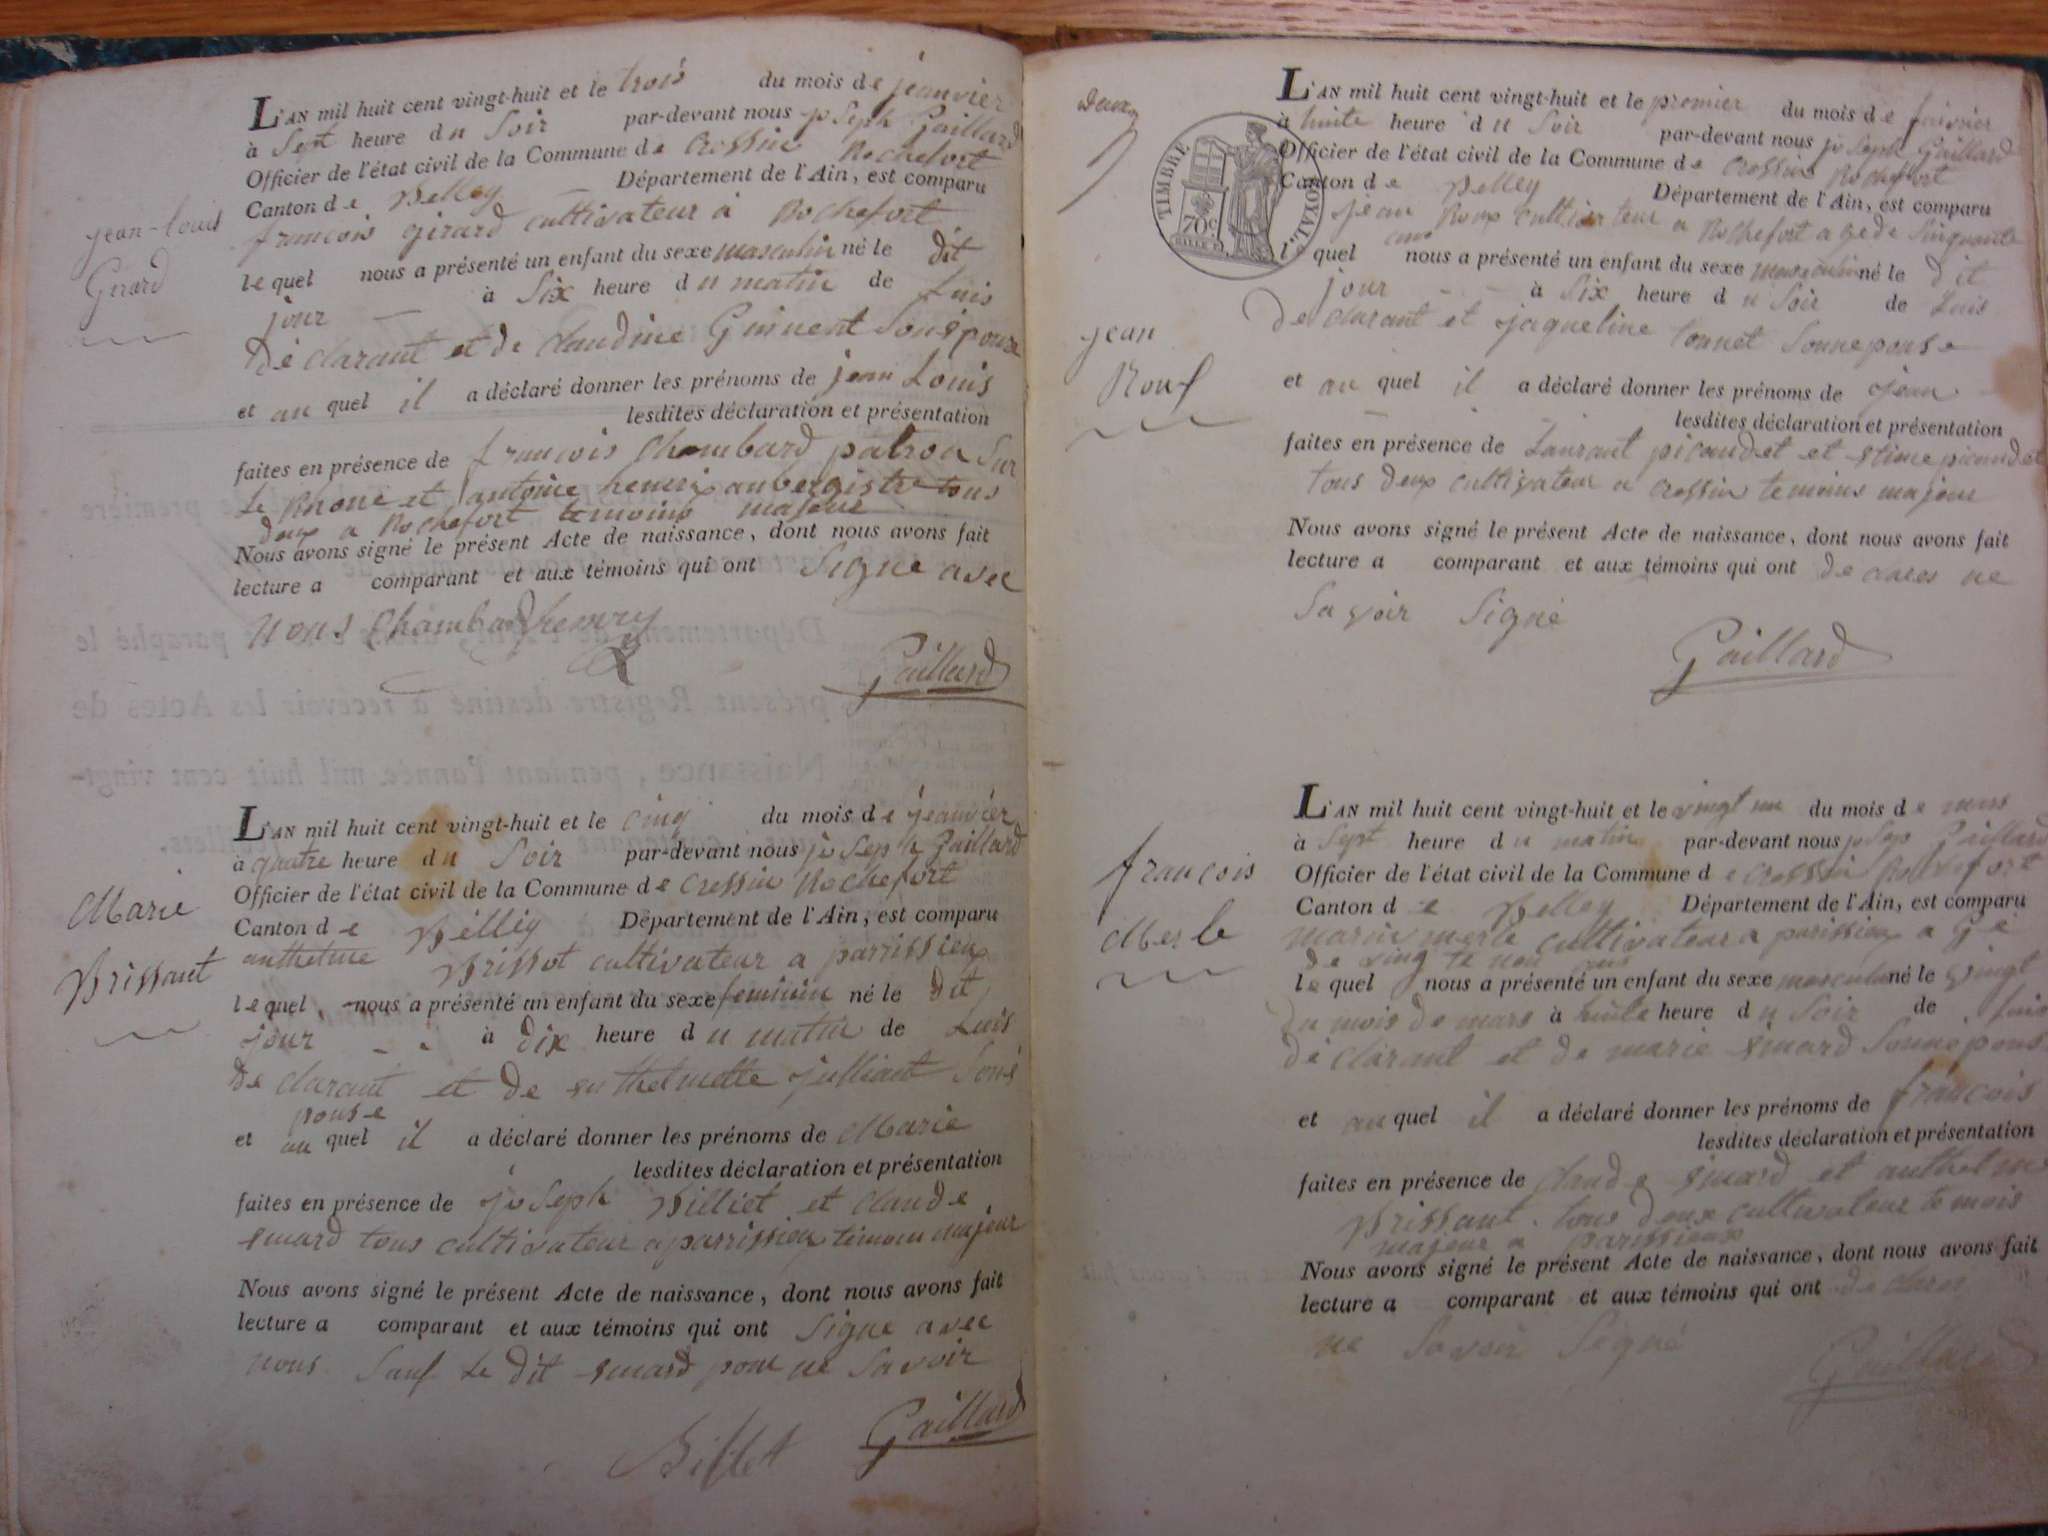 jean-Louis
Girard
L'AN mil huit cent vingt-huit et le trois du mois de jeanvier
à Sept heure du Soir par-devant nous joSeph Gaillard
Officier de l'état civil de la Commune de Cressin Rochefort
Canton de Belley Département de l'Ain, est comparu
francois girard cultivateur a Rochefort
lequel nous a présenté un enfant du sexe masculin né le dit
jour à Six heure du matin de Luis
déclarant et de claudine Guinent Sonépouse
et auquel il a déclaré donner les prénoms de jean Louis
lesdites déclaration et présentation
faites en présence de francois Chambard patron Sur
Le Rhone et antoine henrix aubergistre tous
deux a Rochefort temoins majeur
Nous avons signé le présent Acte de naissance, dont nous avons fait
lecture a comparant et aux témoins qui ont Signe avec
nous Chambard henry
Gaillard
Marie
Brissaut
L'AN mil huit cent vingt-huit et le cinq du mois de jeanvier
à quatre heure du Soir par-devant nous joSeph Gaillard
Officier de l'état civil de la Commune de Cressin Rochefort
Canton de Belley Département de l'Ain, est comparu
anthelme Brissot cultivateur a parrissieux
lequel nous a présenté un enfant du sexe feminin né le dit
jour à dix heure du matin de Luis
declarant et de anthelmette julliant Soné
pouse
et auquel il a déclaré donner les prénoms de Marie
lesdites déclaration et présentation
faites en présence de joSeph Billiet et claude
emard tous cultivateur a parrissieu temoin majeur
Nous avons signé le présent Acte de naissance, dont nous avons fait
lecture a comparant et aux témoins qui ont Signe avec
nous Sauf Le dit emard pour ne Savoir
Billet Gaillard
deux
TIMBRE ROYAL
70 c
jean
Rouf
L'AN mil huit cent vingt-huit et le premier du mois de faivrier
à huite heure du Soir par-devant nous joSeph Gaillard
Officier de l'état civil de la Commune de Cressin Rochefort
Canton de Belley Département de l'Ain, est comparu
jean Roux cultivateur a Rochefort agede Sinquante
ans
lequel nous a présenté un enfant du sexe masculin né le dit
jour à Six heure du Soir de Luis
declarant et jaqueline tonnet Sonnepouse
et auquel il a déclaré donner les prénoms de jean
lesdites déclaration et présentation
faites en présence de Laurant picaudet et picaudet
tous deux cultivateur a Cressin temoins majeur
Nous avons signé le présent Acte de naissance, dont nous avons fait
lecture a comparant et aux témoins qui ont declares ne
Savoir Signé
Gaillard
francois
Merle
L'AN mil huit cent vingt-huit et le vingt un du mois de mars
à Sept heure du matin par-devant nous joSep Gaillard
Officier de l'état civil de la Commune de Cressin Rochefort
Canton de Belley Département de l'Ain, est comparu
marin merle cultivateur a parissieu a gé
de
lequel nous a présenté un enfant du sexe masculin né le vingt
du mois de mars à huite heure du Soir de Luis
déclarant et de marie emard Sonnepous
et auquel il a déclaré donner les prénoms de francois
lesdites déclaration et présentation
faites en présence de claude emard et anthelme
Brissaut tous deux cultivateur temois
majeur a parissieux
Nous avons signé le présent Acte de naissance, dont nous avons fait
lecture a comparant et aux témoins qui ont declares
ne Savoir Signé
Gaillard